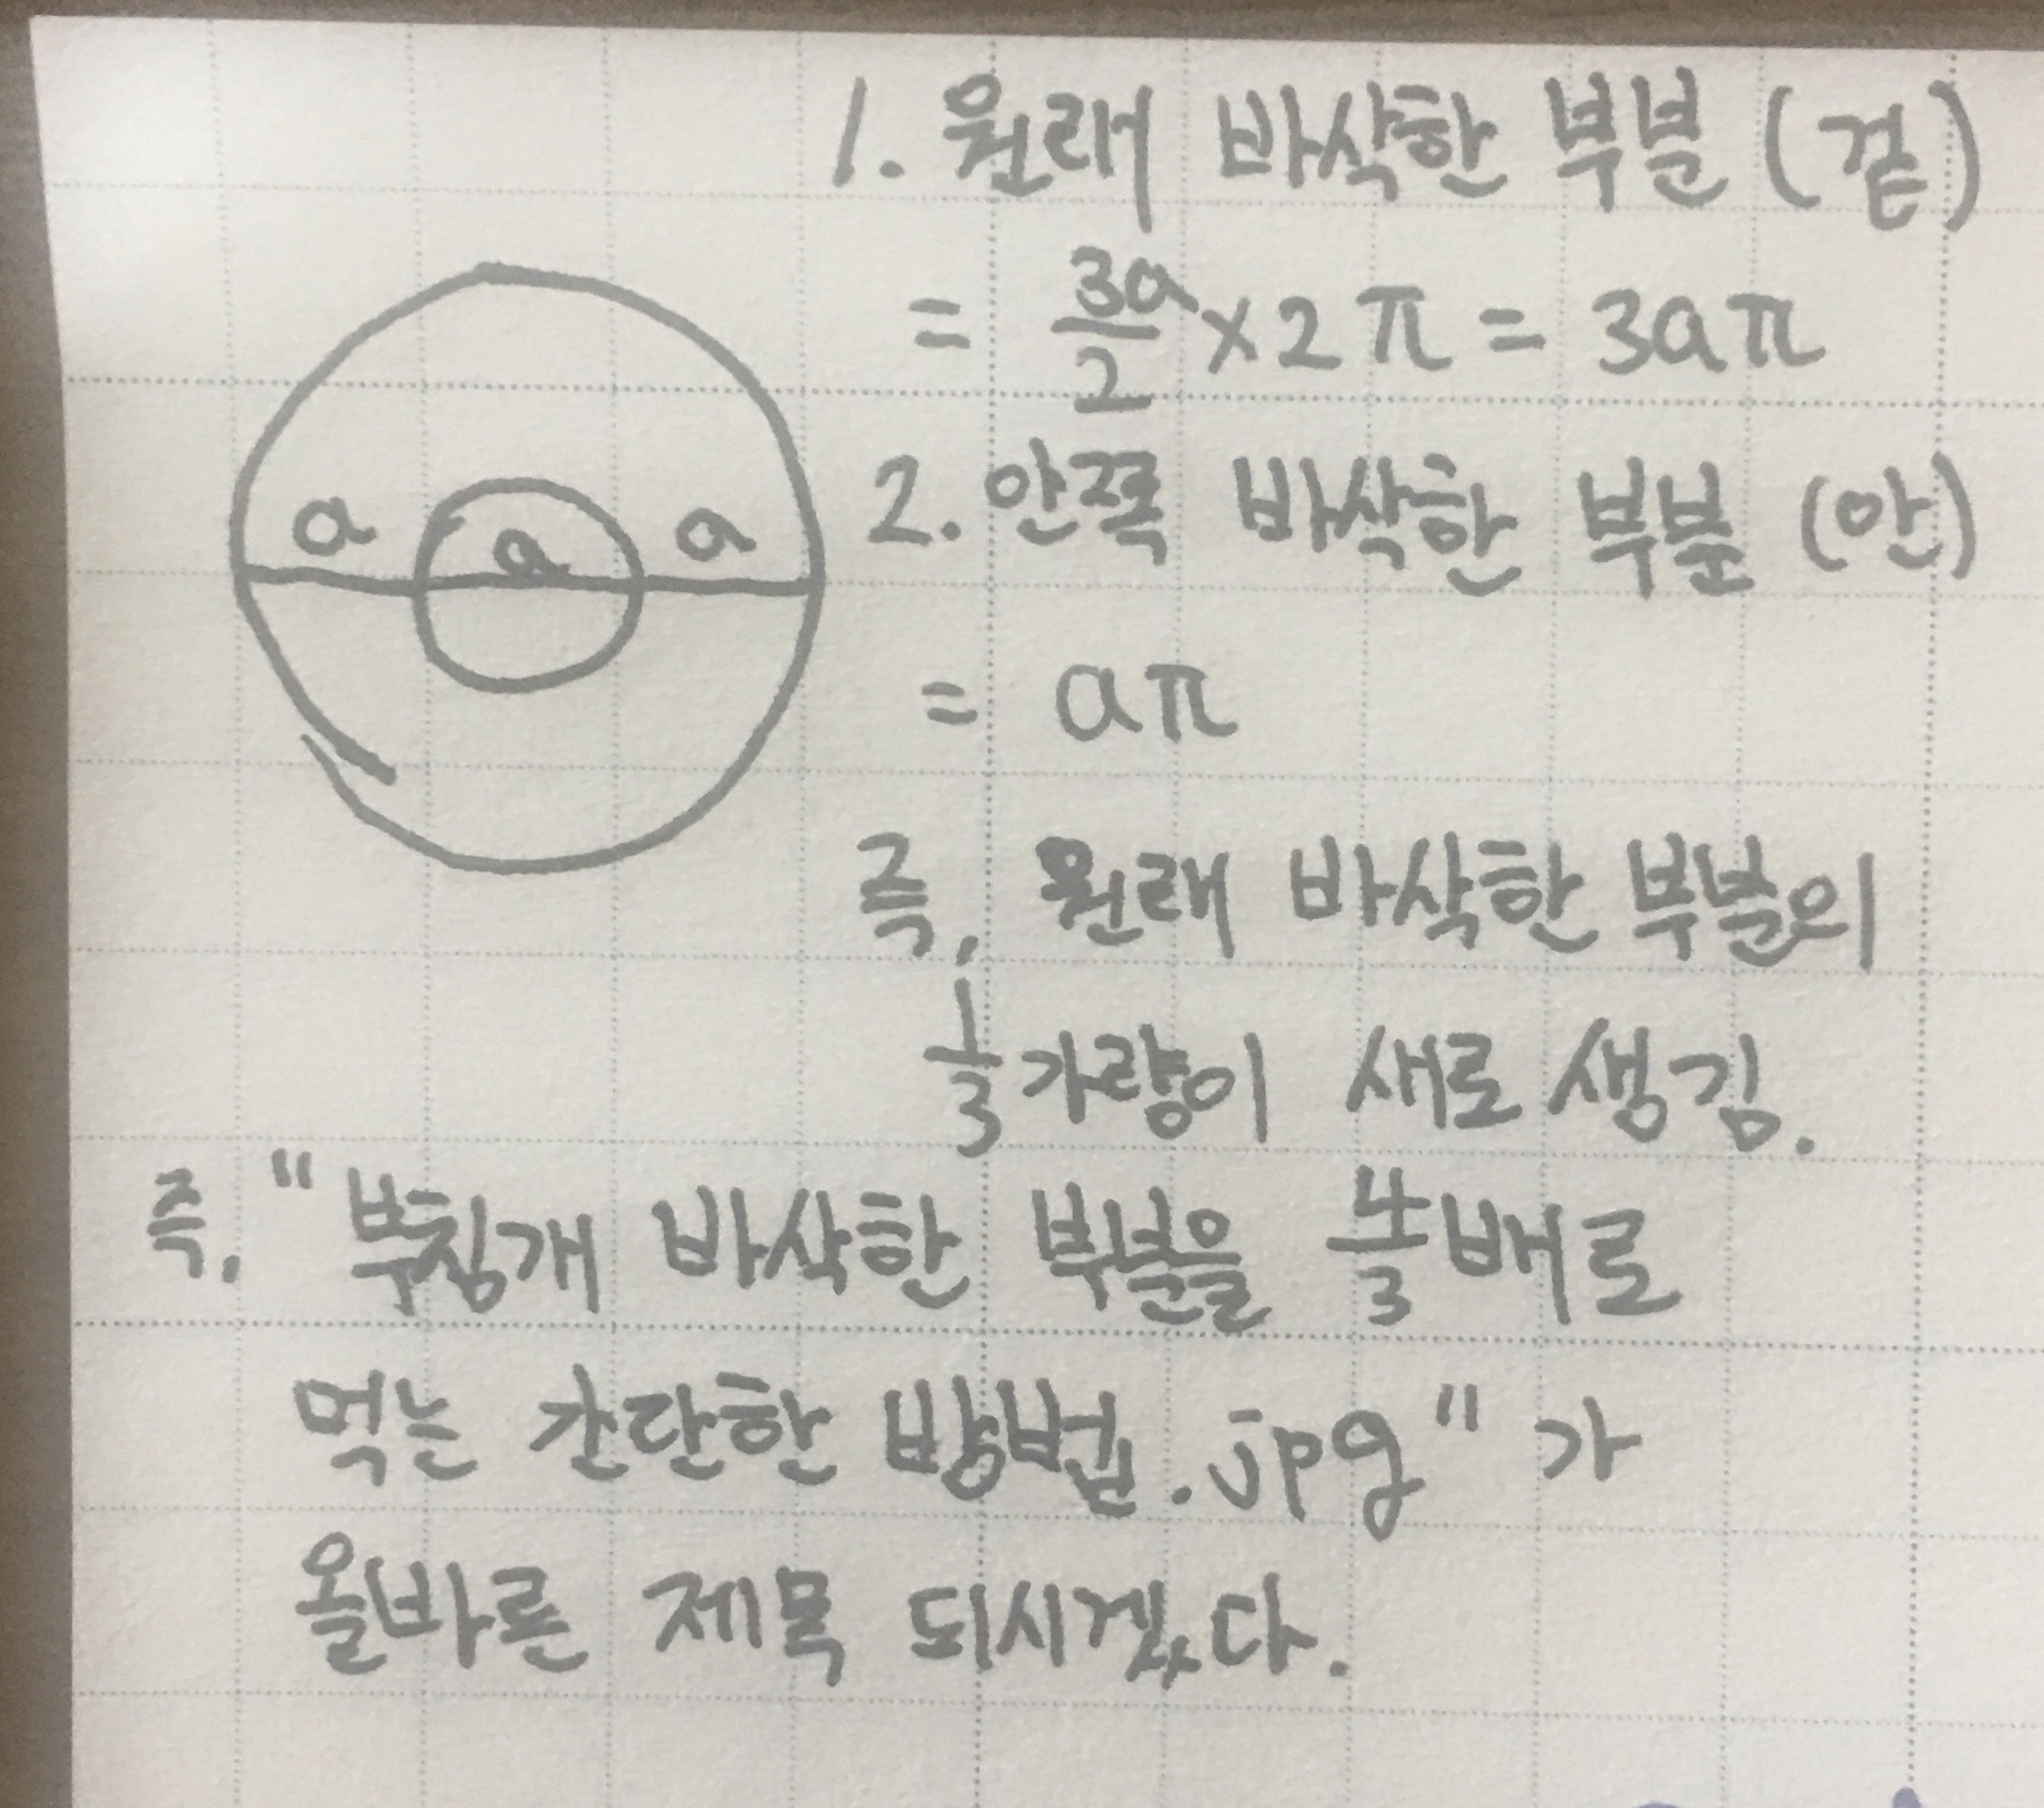 1. 원래 바삭한 부분 (겉)
= 3a/2 × 2π = 3aπ
a a a
2. 안쪽 바삭한 부분 (안)
= aπ
즉, 원래 바삭한 부분의
1/3 가량이 새로 생김.
즉, "부침개 바삭한 부분을 4/3배로
먹는 간단한 방법.jpg" 가
올바른 제목 되시겠다.